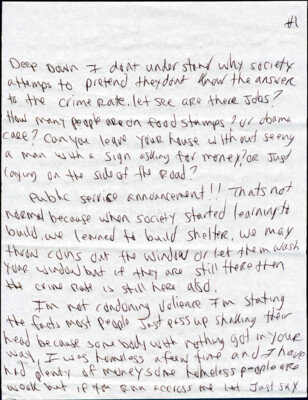 #1
Deep Down I dont understand why society
attemps to pretend they dont know the answer
to the crime rate. let see are there jobs?
How many people are on food stamps? or obama
care? Can you leave your house without seeing
a man with a sign asking for money, or Just
laying on the side of the Road?
Public service announcement!! Thats not
normal because when society started learning to
build. we learned to build shelter. we may
throw coins out the window or let them wash
your window but if they are still there then
the crime rate is still here also.
I'm not condoning volience I'm stating
the facts most people Just pass up shaking their
head because some body with nothing got in your
way, I was homeless a few time and I have
had plenty of money some homeless people are
weak but if you run accross me let Just say